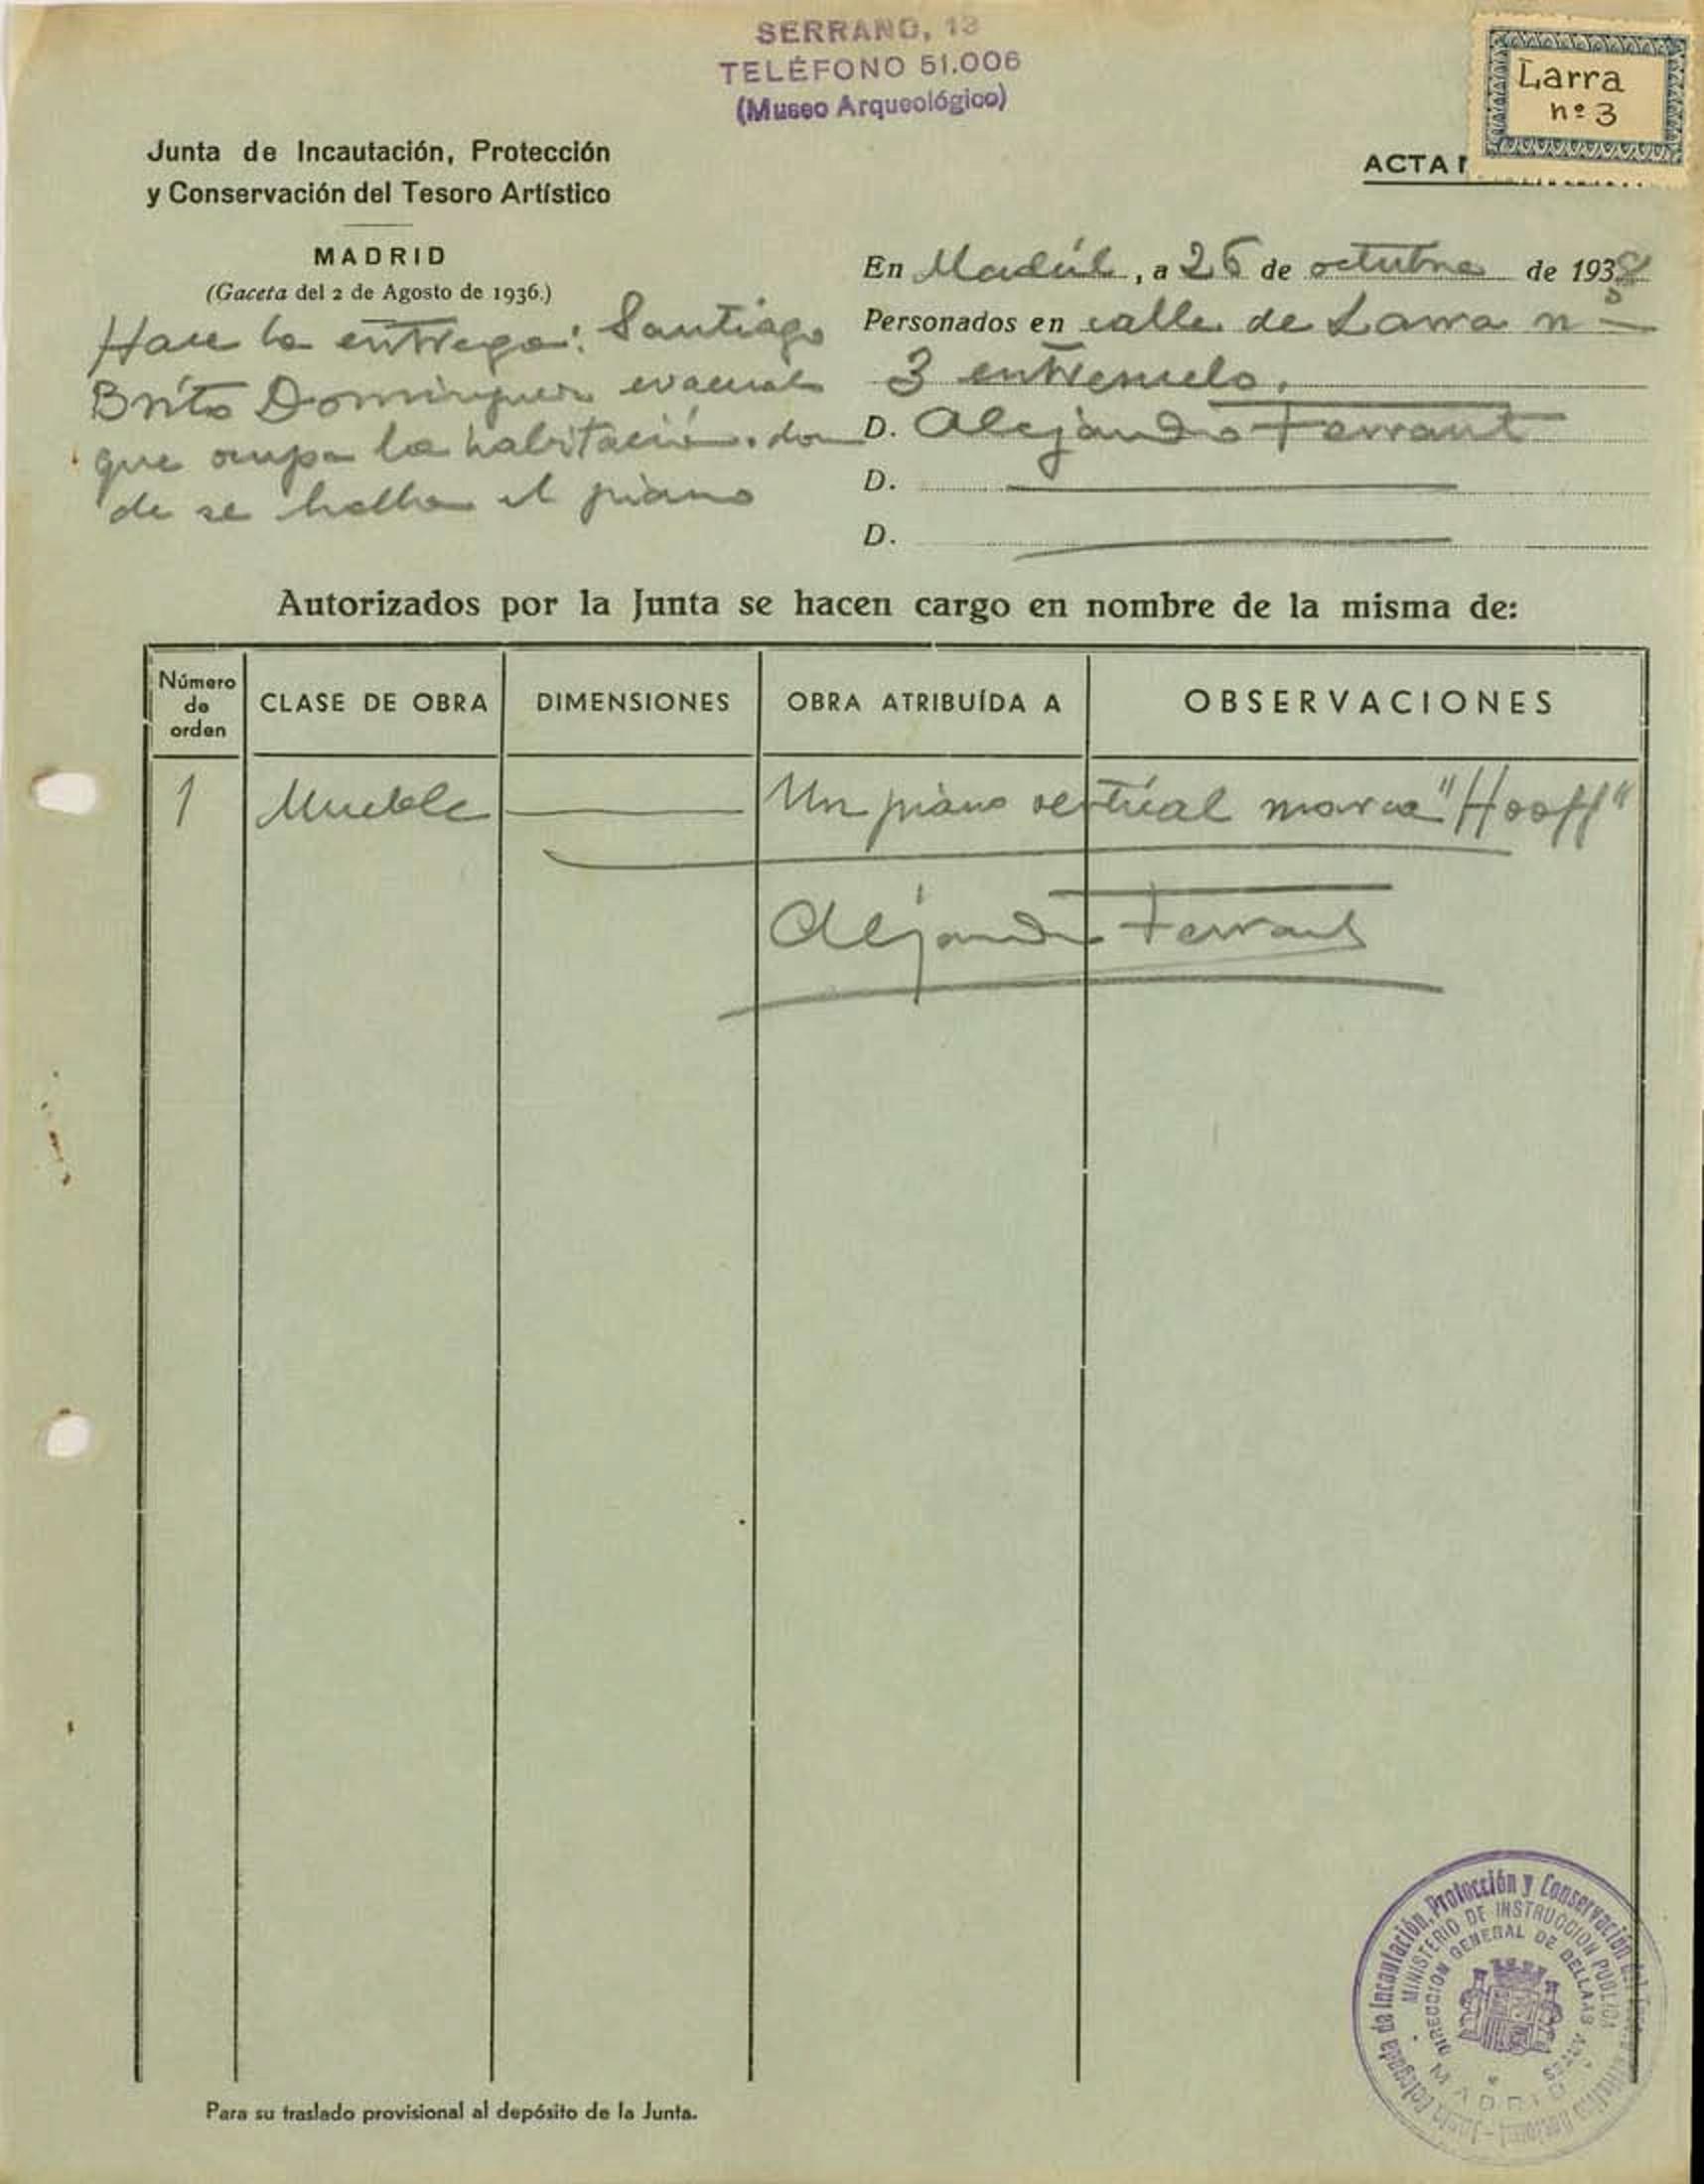 SERRANO, 13
TELÉFONO 51.006
(Museo Arqueológico)
Larra
nº 3
Junta de Incautación, Protección
y Conservación del Tesoro Artístico
MADRID
(Gaceta del 2 de Agosto de 1936.)
ACTA
Hace la entrega: Santiago
Brito Dominguez evacuado
que ocupa la habitación don
de se halla el piano
En Madrid, a 26 de octubre de 1938
Personados en calle de Larra nº
3 entresuelo.
D. Alejandro Ferrant
D.
D.
Autorizados por la Junta se hacen cargo en nombre de la misma de:
Número de orden CLASE DE OBRA DIMENSIONES OBRA ATRIBUÍDA A OBSERVACIONES
1 Mueble Un piano vertical marca "Hooff"
Alejandro Ferrant
Para su traslado provisional al depósito de la Junta.
Junta Delegada de Incautación, Protección y Conservación del
MINISTERIO DE INSTRUCCION PUBLICA
DIRECCION GENERAL DE BELLAS ARTES
MADRID